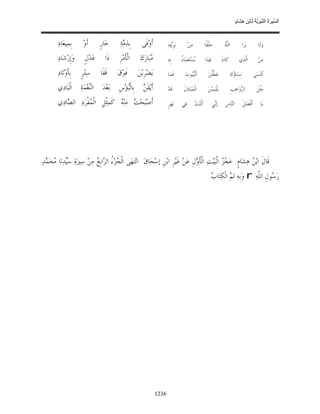 السِّيرَةُ النَّبَوِيَّةُ لابْنِ هِشَامٍ
وَلَا بَرَا اللَّهُ خَلْقًا مِنْ بَرِيَّتِهِ أَوْفَى بِذِمَّةِ جَارٍ أَوْ بِمِيعَادِ
مِنْ الَّذِي كَانَ فِينَا يُسْتَضَاءُ بِهِ مُبَارَكَ الْأَمْرِ ذَا عَدْلٍ وَإِرْشَادِ
أَمْسَى نِسَاؤُكَ عَطَّلْنَ الْبُيُوتَ فَمَا يَضْرِبْنَ فَوْقَ قَفَا سِتْرٍ بِأَوْتَادِ
مِثْلَ الرَّوَاهِبِ يَلْبَسْنَ الْمَبَاذِلَ قَدْ أَيْقَنَّ بِالْبُؤْسِ بَعْدَ النِّعْمَةِ الْبَادِي
يَا أَفْضَلَ النَّاسِ إنِّي كُنْتُ فِي نَهَرٍ أَصْبَحْتُ مِنْهُ كَمِثْلِ الْمُفْرَدِ الصَّادِي
قَالَ ابْنُ هِشَامٍ: عَجُزُ الْبَيْتِ الْأَوَّلِ عَنْ غَيْرِ ابْنِ إسْحَاقَ. انْتَهَى الْجُزْءُ الرَّابِعُ مِنْ سِيرَةِ سَيِّدِنَا مُحَمَّدٍ
رَسُولِ اللَّهِ r وَبِهِ تَمَّ الْكِتَابُ
1236